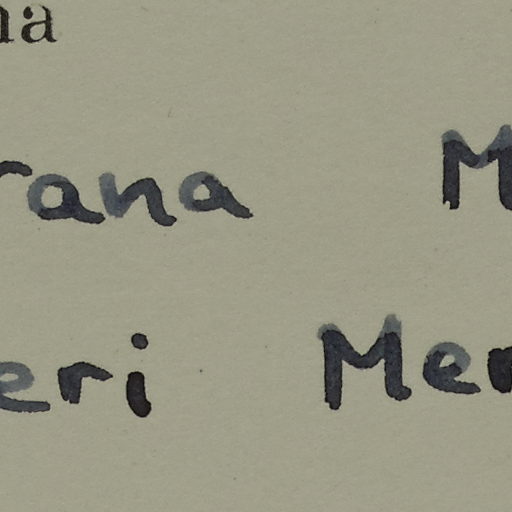 na
rana M
eri Mer